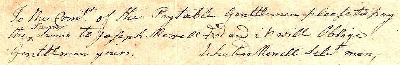 To the Comt of the Paytable Gentlemen please to pay
this Sum to Joseph Merell and it will Oblige
Gentlemen yours. Merell Select man,